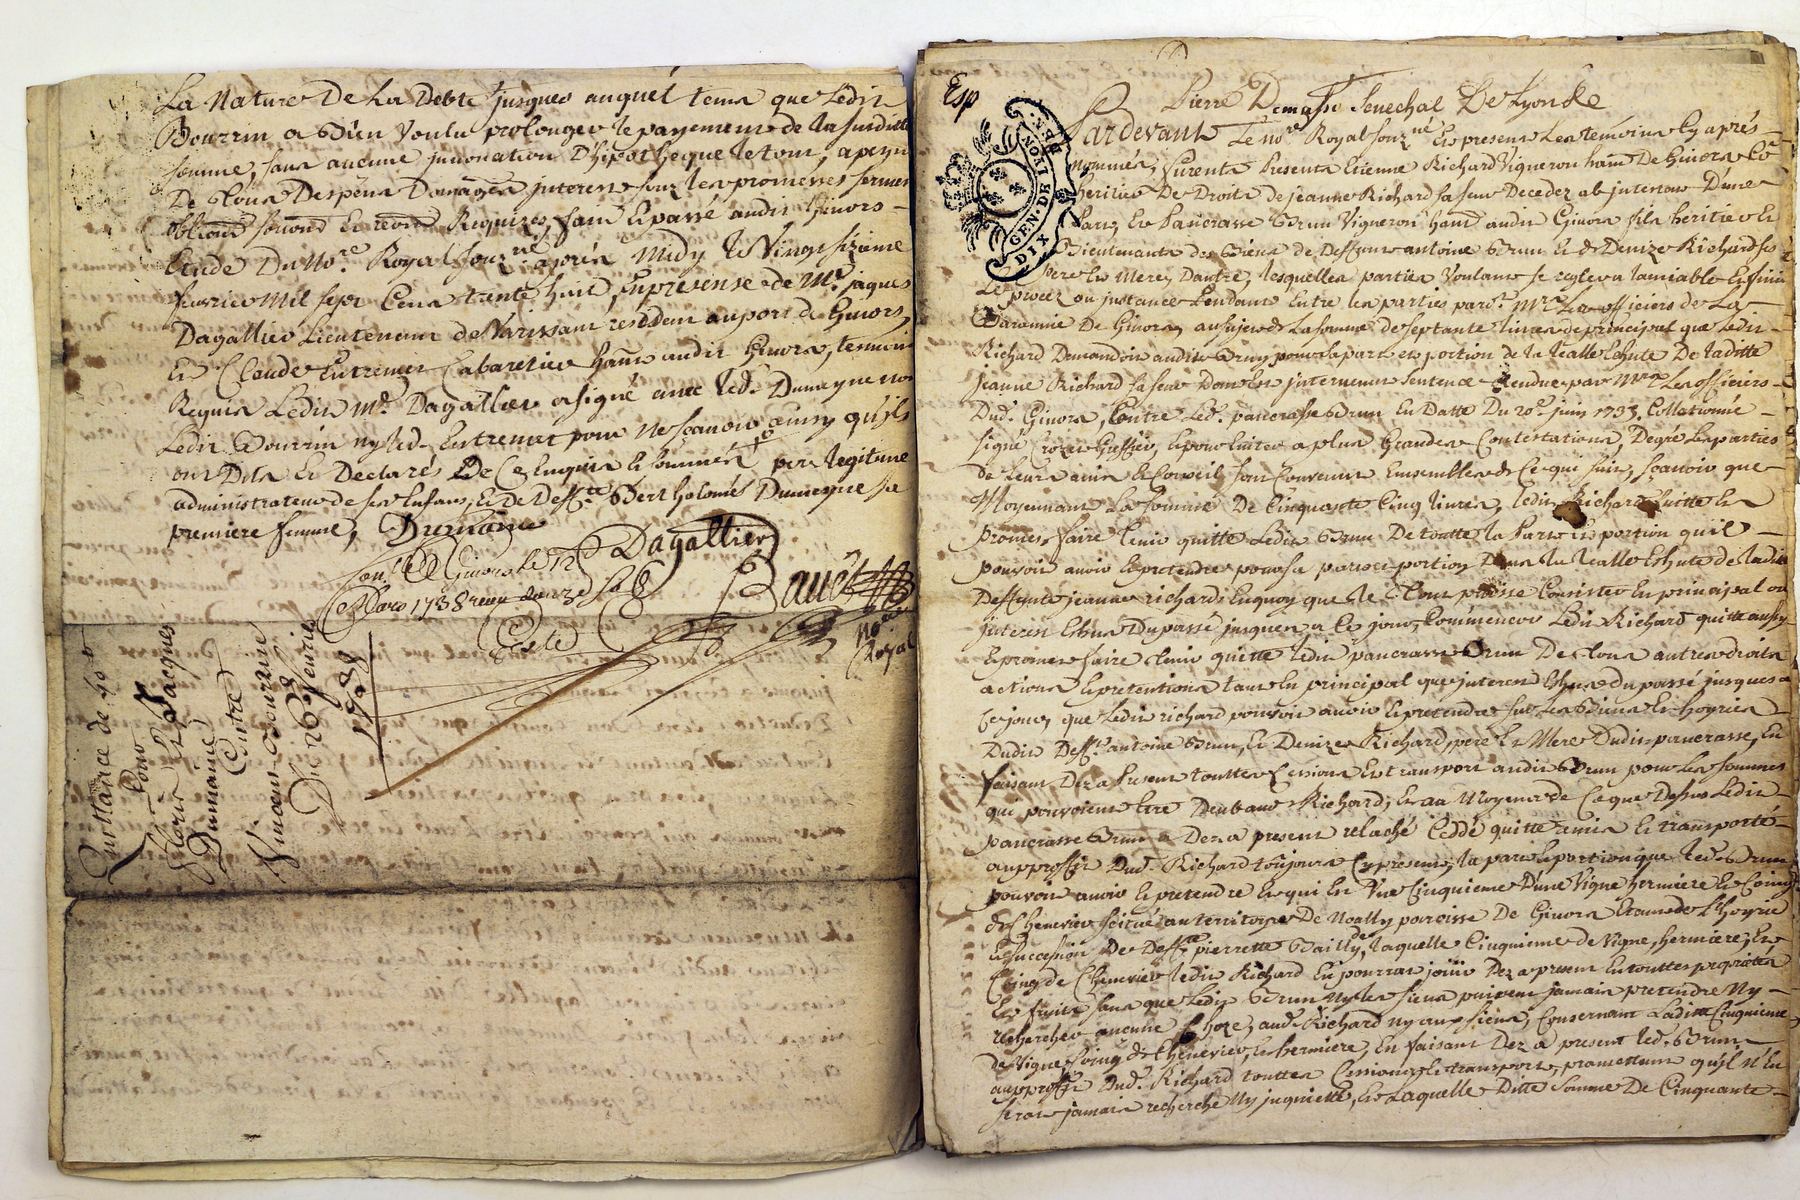 La Nature De La Debte jusques auquel tems que Ledit
Bourrin a Bien Voulu prolonger le payement de la susditte
somme, sans aucune jnnovation D'hipotheque le tout, a peyne
De Tous Despens Domages jnterests sous les promesses serment
obligons Renond Requizes, fait Et passé audit Givors
Etude Du No.re Royal souz.né après Midy le Vingt sizieme
fevrier Mil sept Cens trente huit, En presense de M.e jaques
Dagallier Lieutenant de resident au port de Givors,
Et Claude Entremet Cabaretier hant. audit Givors, temoins
Requis Ledit M.e Dagallier a signé avec led. Dumayne non
Ledit Bourrin ny led. Entremet pour ne scavoir ainsy qu'ils
ont Dits Et Declarés De Ce Enquis Et sommés pere legitime
administrateur de ses Enfans, Et De Deff.te Bertholomée Dumayne sa
premiere femme, Dumaine
Dagallier
Con.lé A Givors Le 12
Mars 1738 receu douze sols
Bauet
No.re
Royal
Quittance de
Pour
Floris Et Jacques
Dumaine
Contre
Vincent Bourrin
Du 26 fevrier
1738
Esp
Pierre Demasso Senechal De Lyon &c
GEN. DE LYON
DIX DEN.
Pardevant Le No.re Royal souz.né Et presens Les temoins Cy après
nommés, furents Presents Etienne Richard Vigneron hant De Givors Co.
heritier De Droits de jeanne Richard sa seur Decedez ab jntestat D'une
Part, Et Pancrasse Brun Vigneron hant audit Givors fils heritier Et
Bientenants des Biens de Deffunt antoine Brun Et de Denize Richard ses
Pere Et Mere, Dautre, lesquelles parties Voulant se regler a lamiable Et finir
Le procez ou jnstance Pendant Entre les parties pard.t M.rs Les officiers de La
Baronnie De Givors, au sujet de La somme de septante livres de principal que Ledit
Richard Demandoit audit Brun pour sa part Et portion de la Ealle Echute De laditte
jeanne Richard sa seur Dont Est jntervenu sentence Rendue par M.rs Les officiers
Dud. Givors, Contre Led. pancrasse Brun En Datte Du 20.e juin 1733, Collationné
signé Greffier, Et pour Eviter a plus Grandes Contestations, De gré Les parties
de Leurs amis Et Conseils sont Convenus Ensembles de Ce qui suit, scavoir que
Moyennant La somme De Cinquante Cinq livres, ledit Richard quitte Et
promet faire Tenir quitte Ledit Brun De toutte la Part Et portion qu'il
pouvoit avoir Et pretendre pour sa part Et portion Dans la Ealle Echute de ladite
Deffunte jeanne richard, En quoy que le Tout puisse Consister En principal ou
jnterest Echus Du passé jusques a Ce jour, Comme encor Ledit Richard quitte aussy
Et promet faire Tenir quitte Ledit pancrasse Brun De Tous autres droits
actions Et pretentions tant En principal que jnterest Echus du passé jusques a
Ce jour, que Ledit richard pouvoit avoir Et pretendre sur Les Biens Et hoyries
Dudit Deff.t antoine Brun, Et Denize Richard, pere Et Mere Dudit pancrasse, En
faisant Dez a Present touttes Cessions Et transport audit Brun pour Les sommes
qui pouvoient Etre Deubt aud. Richard, Et au Moyen de Ce que Dessus Ledit
pancrasse Brun a Dez a present relaché Ceddé quitté remis Et transporté
au proffit Dud. Richard toujours Cy present, la part Et portion que led. Brun
pouvoit avoir Et pretendre Et qui Est Une Cinquieme D'une Vigne hermiere Et Coing
de Chenevier scitués au territoire De Noally paroisse De Givors Et de L'hoyrie
Et succession De Deff.te pierrette Bailly, laquelle Cinquieme de Vigne, hermiere, Et
Coing de Chenevier Ledit Richard En pourra joüir Dez a present En touttes proprietés
Et fruits sans que Ledit Brun ny les siens puissent jamais pretendre Ny
rechercher aucune Choze, aud. Richard ny aux siens, Consernant Laditte Cinquieme
de Vigne, Coing de Chenevier, Et hermiere, En faisant Dez a present led. Brun
au proffit Dud. Richard touttes Cessions Et transports, promettant qu'il N'En
sera jamais recherché Ny jnquietté, Et Laquelle Ditte Somme De Cinquante